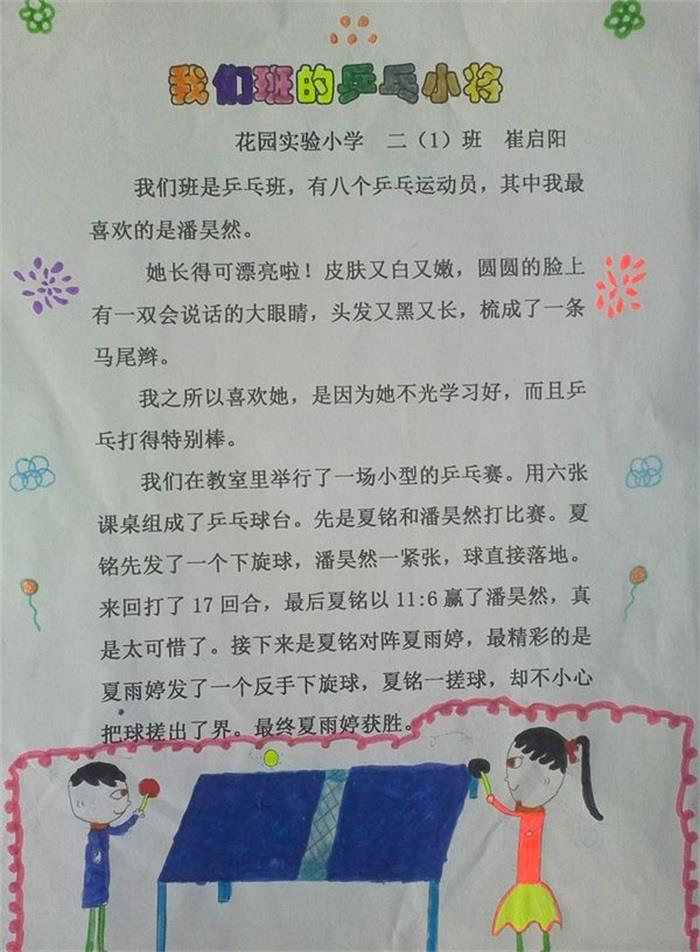 我们班的乒乓小将
花园实验小学 二（1）班 崔启阳
我们班是乒乓班，有八个乒乓运动员，其中我最
喜欢的是潘昊然。
她长得可漂亮啦！皮肤又白又嫩，圆圆的脸上
有一双会说话的大眼睛，头发又黑又长，梳成了一条
马尾辫。
我之所以喜欢她，是因为她不光学习好，而且乒
乓打得特别棒。
我们在教室里举行了一场小型的乒乓赛。用六张
课桌组成了乒乓球台。先是夏铭和潘昊然打比赛。夏
铭先发了一个下旋球，潘昊然一紧张，球直接落地。
来回打了17回合，最后夏铭以11:6赢了潘昊然，真
是太可惜了。接下来是夏铭对阵夏雨婷，最精彩的是
夏雨婷发了一个反手下旋球，夏铭一搓球，却不小心
把球搓出了界。最终夏雨婷获胜。